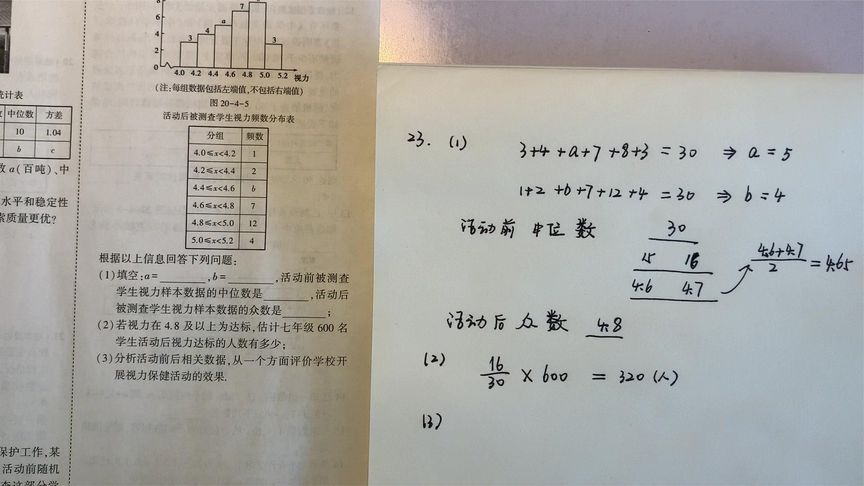 8
7
6
a
4
4
3
3
2
0
4.0 4.2 4.4 4.6 4.8 5.0 5.2 视力
(注:每组数据包括左端值,不包括右端值)
图 20-4-5
活动后被测查学生视力频数分布表
分组 频数
4.0≤x<4.2 1
4.2≤x<4.4 2
4.4≤x<4.6 b
4.6≤x<4.8 7
4.8≤x<5.0 12
5.0≤x<5.2 4
根据以上信息回答下列问题:
(1)填空:a=______,b=______,活动前被测查
学生视力样本数据的中位数是______,活动后
被测查学生视力样本数据的众数是______;
(2)若视力在 4.8 及以上为达标,估计七年级 600 名
学生活动后视力达标的人数有多少;
(3)分析活动前后相关数据,从一个方面评价学校开
展视力保健活动的效果.
计表
中位数 方差
10 1.04
b c
数 a(百吨)、中
水平和稳定性
质量更优?
保护工作,某
活动前随机
23. (1) 3+4+a+7+8+3=30 ⇒ a=5
1+2+b+7+12+4=30 ⇒ b=4
活动前 中位数 30
15 16
4.6 4.7
4.6+4.7/2 =4.65
活动后 众数 4.8
(2) 16/30 × 600 = 320(人)
(3)